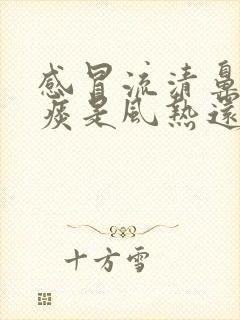 感冒流清鼻
痰是風熱還
十方雪